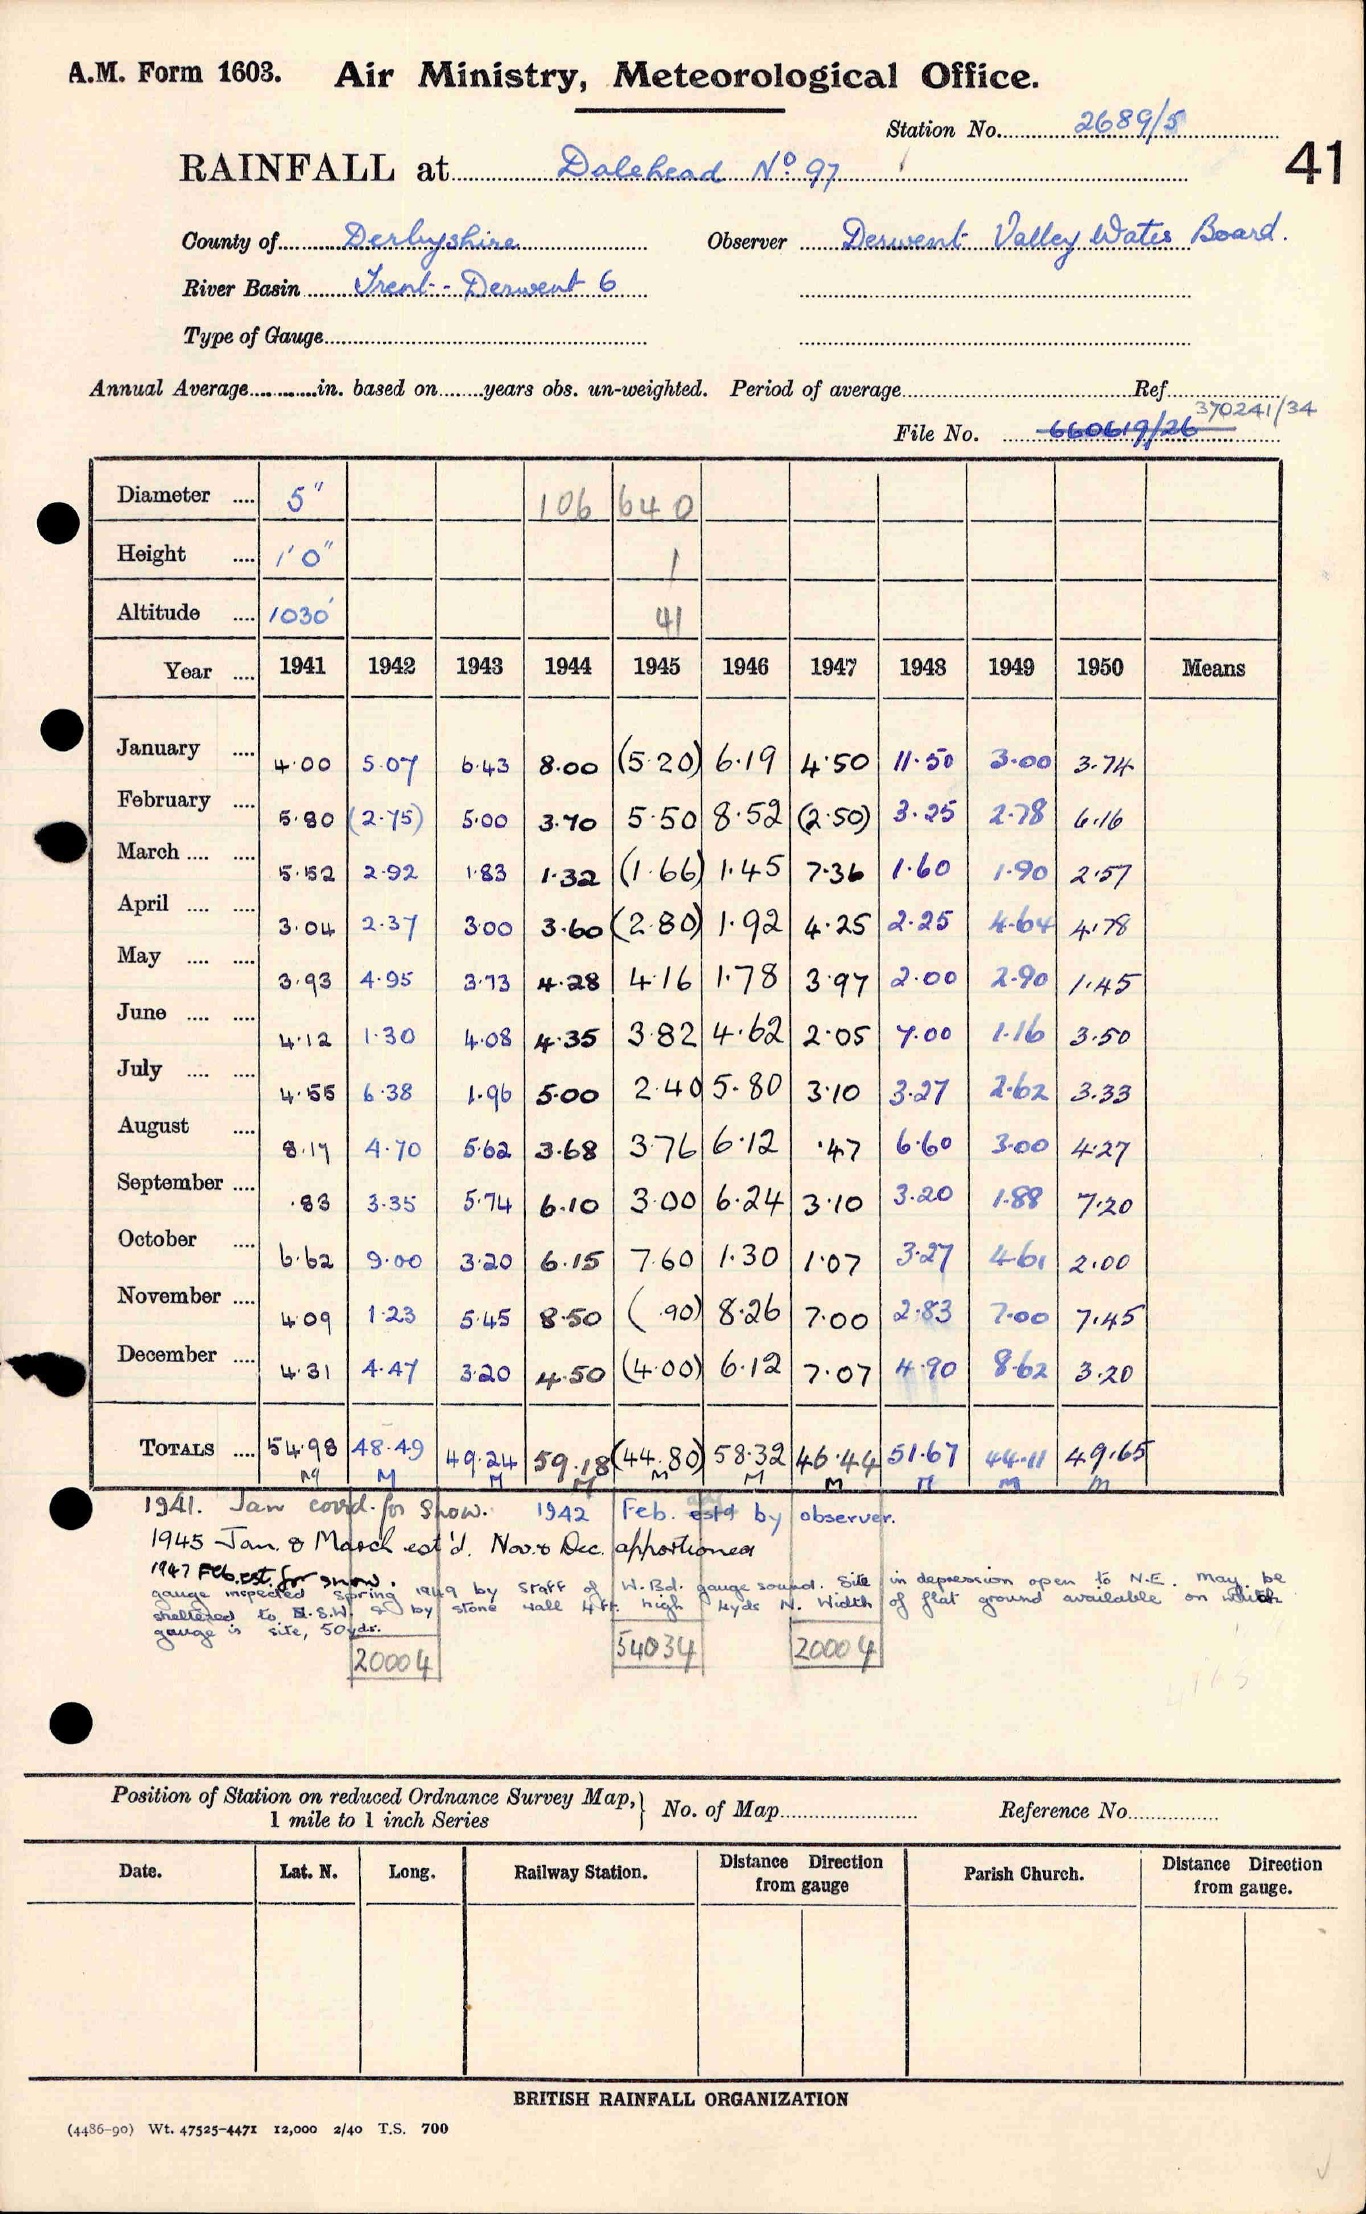 A.M. Form 1603. Air Ministry, Meteorological Office.
Station No. 2689/5
41
RAINFALL at Dalehead No 97
County of Derbyshire Observer Derwent Valley Water Board.
River Basin Trent - Derwent 6
Type of Gauge
Annual Average in. based on years obs. un-weighted. Period of average Ref
370241/34
File No. 660619/26
Diameter 5" 106 640
Height 1'0" 1
Altitude 1030' 41
Year 1941 1942 1943 1944 1945 1946 1947 1948 1949 1950 Means
January 4.00 5.07 6.43 8.00 (5.20) 6.19 4.50 11.50 3.00 3.74
February 5.80 (2.75) 5.00 3.70 5.50 8.52 (2.50) 3.25 2.78 6.16
March 5.52 2.92 1.83 1.32 (1.66) 1.45 7.36 1.60 1.90 2.57
April 3.04 2.37 3.00 3.60 (2.80) 1.92 4.25 2.25 4.64 4.78
May 3.93 4.95 3.73 4.28 4.16 1.78 3.97 2.00 2.90 1.45
June 4.12 1.30 4.08 4.35 3.82 4.62 2.05 7.00 1.16 3.50
July 4.55 6.38 1.96 5.00 2.40 5.80 3.10 3.27 2.62 3.33
August 8.17 4.70 5.62 3.68 3.76 6.12 .47 6.60 3.00 4.27
September .83 3.35 5.74 6.10 3.00 6.24 3.10 3.20 1.88 7.20
October 6.62 9.00 3.20 6.15 7.60 1.30 1.07 3.27 4.61 2.00
November 4.09 1.23 5.45 8.50 (.90) 8.26 7.00 2.83 7.00 7.45
December 4.31 4.47 3.20 4.50 (4.00) 6.12 7.07 4.90 8.62 3.20
TOTALS 54.98 48.49 49.24 59.18 (44.80) 58.32 46.44 51.67 44.11 49.65
M M M M M M M M M
1941. Jan corrd. for snow. 1942 Feb. estd by observer.
1945 Jan. & March est'd. Nov. & Dec. apportioned
1947 Feb. est. for snow.
gauge inspected Spring 1949 by Staff of W. Bd. gauge sound. Site in depression open to N.E. May be
sheltered to S.W. & by stone wall 4ft. high 4yds N. Width of flat ground available on which
gauge is site, 50yds.
20004 54034 20004
Position of Station on reduced Ordnance Survey Map, No. of Map Reference No.
1 mile to 1 inch Series
Date. Lat. N. Long. Railway Station. Distance from gauge Direction Parish Church. Distance Direction from gauge.
BRITISH RAINFALL ORGANIZATION
(4486-90) Wt. 47525-4471 12,000 2/40 T.S. 700